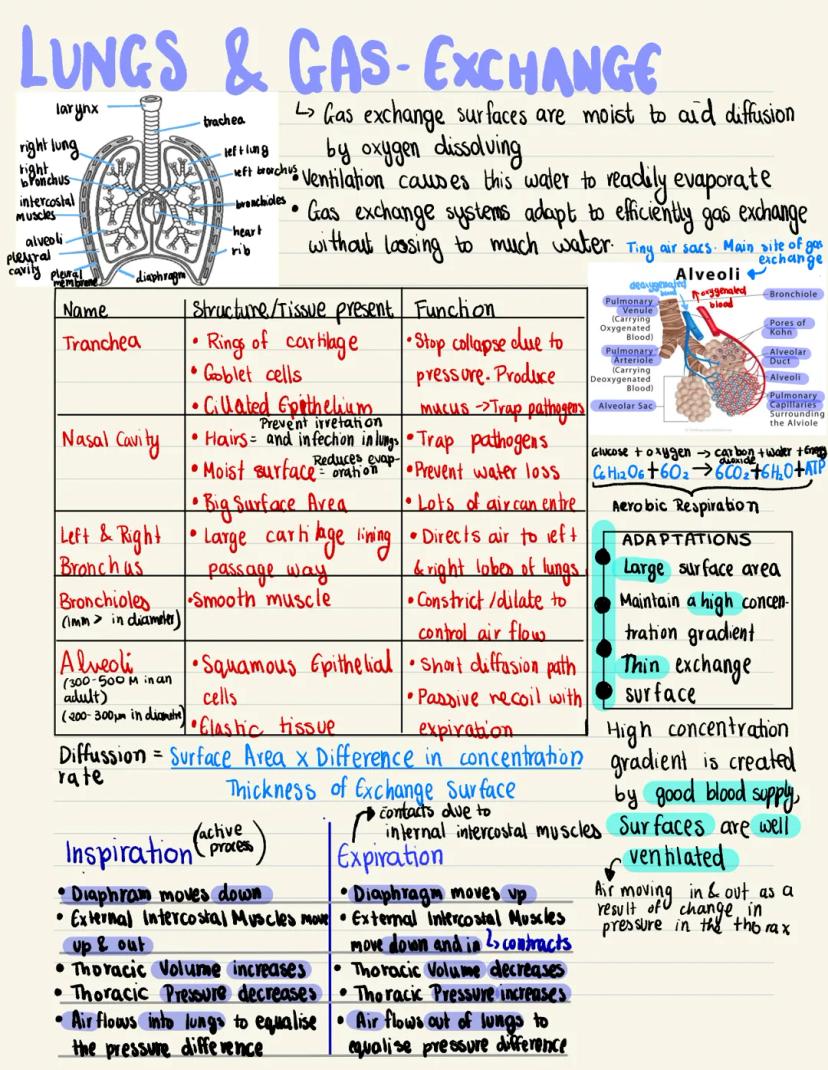 LUNGS & GAS-EXCHANGE
larynx
trachea
right lung
left lung
right bronchus
left bronchus
intercostal muscles
bronchioles
alveoli
heart
pleural cavity
rib
pleural membrane
diaphragm
↳ Gas exchange surfaces are moist to aid diffusion
by oxygen dissolving
• Ventilation causes this water to readily evaporate
• Gas exchange systems adapt to efficiently gas exchange
without lossing to much water.
Tiny air sacs. Main site of gas
exchange
Alveoli
deoxygenated blood
oxygenated blood
Pulmonary
Venule
(Carrying
Oxygenated
Blood)
Pulmonary
Arteriole
(Carrying
Deoxygenated
Blood)
Alveolar Sac
Bronchiole
Pores of
Kohn
Alveolar
Duct
Alveoli
Pulmonary
Capillaries
Surrounding
the Alviole
Name Structure/Tissue present Function
Tranchea
• Rings of cartilage
• Goblet cells
• Cillated Epithelium
• Stop collapse due to
pressure. Produce
mucus -> Trap pathogens
Nasal Cavity
• Hairs = Prevent irretation and infection in lungs
• Moist surface = Reduces evap-oration
• Big Surface Area
• Trap pathogens
• Prevent water loss
• Lots of air can entre
Left & Right
Bronchus
• Large cartilage lining
passage way
• Directs air to left
& right lobes of lungs
Bronchioles
(1mm > in diameter)
• Smooth muscle
• Constrict/dilate to
control air flow
Alveoli
(300-500 M in an
adult)
(200-300µm in diametre)
• Squamous Epithelial
cells
• Elastic tissue
• Short diffusion path
• Passive recoil with
expiration
Glucose + oxygen → carbon dioxide + water + Energy
C6H12O6 + 6O2 → 6CO2 + 6H2O + ATP
Aerobic Respiration
ADAPTATIONS
Large surface area
Maintain a high concen-
tration gradient
Thin exchange
surface
High concentration
gradient is created
by good blood supply,
Surfaces are well
ventilated
Air moving in & out as a
result of change in
pressure in the thorax
Diffussion rate = Surface Area x Difference in concentration
Thickness of Exchange Surface
Inspiration (active process)
• Diaphram moves down
• External Intercostal Muscles move
up & out
• Thoracic Volume increases
• Thoracic Pressure decreases
• Air flows into lungs to equalise
the pressure difference
contacts due to
internal intercostal muscles
Expiration
• Diaphragm moves up
• External Intercostal Muscles
move down and in ↳ contracts
• Thoracic Volume decreases
• Thoracic Pressure increases
• Air flows out of lungs to
equalise pressure difference